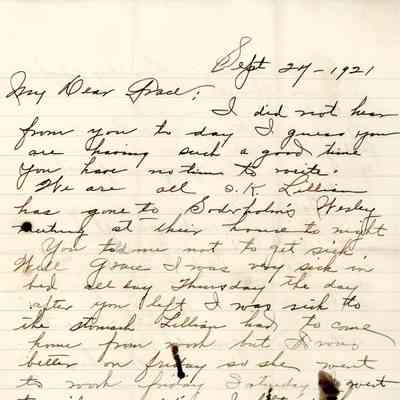 Sept 24-1921
My Dear Grace:
I did not hear
from you to day I guess you
are having such a good time
you have no time to write.
We are all o.K. Lillian
has gone to Wesley
meeting at their house to night
You told me not to get sick
Well Grace I was very sick in
bed all day Thursday the day
after you left I was sick to
the stomach Lillian had to come
home from work but I was
better on friday so she went
to work friday Saturday I went